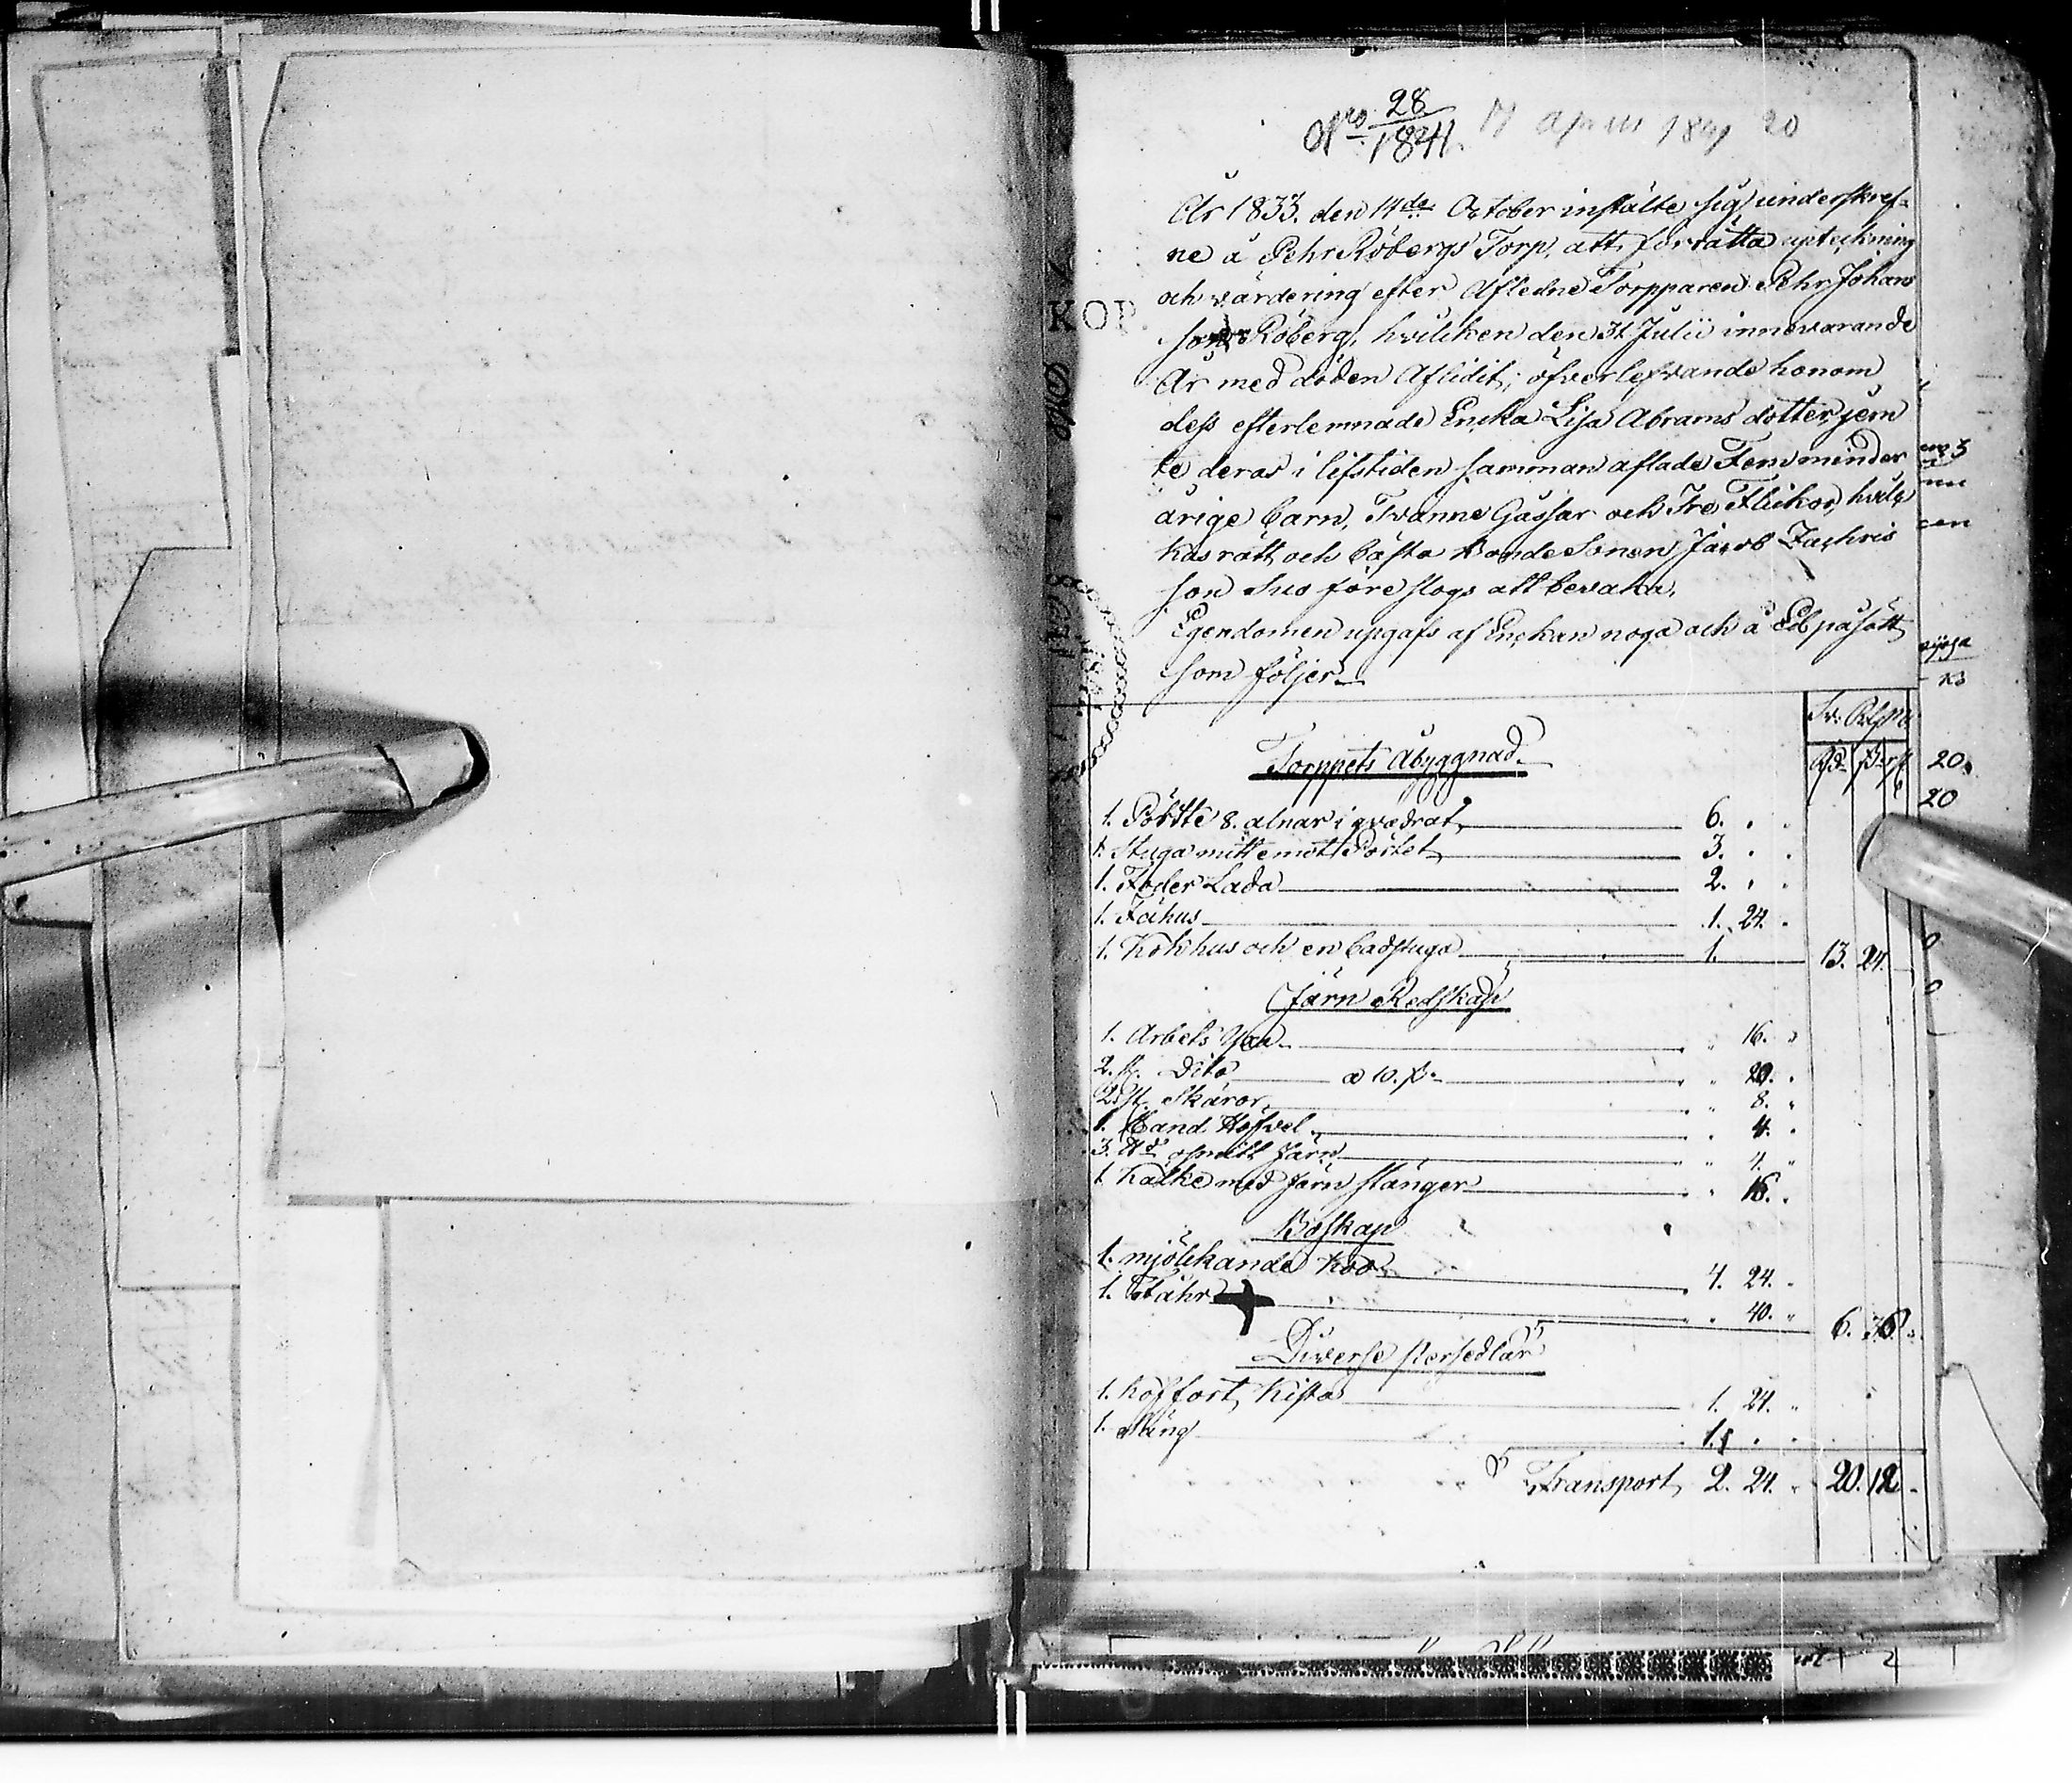 Nro 28/1841. 17 April 1841 20
År 1833. den 14de October instälte sig underskref-
ne å Pehr Röbergs Torp, att förrätta upteckning
och värdering efter Afledne Torpparen Pehr Johans
son Röberg, hvilken den 31 Julii innevarande
År med döden Aflidit; öfverlefvande honom
dess efterlemnade Encka Lisa Abrams dotter, jem
te deras i lifstiden samman aflade Fem minder
årige barn, Tvänne Gåssar och Tre Flickor, hvil-
kas rätt och bästa Bonde Sonen Jacob Zachris
son Suo föreslogs att bevaka.
Egendomen upgafs af Enckan noga och å Ed påsätt
som följer
Torppets Åbyggnad.
Rd ß rst
1. Pörtte 8. alnar i qvadrat 6. . .
1. Stuga mitt emot Pörtet 3. . .
1. Foder Lada 2. . .
1. Fähus 1. 24. .
1. Kokhus och en badstuga 1. 13. 24.
Järn Redskap
1. Arbets Yxa " 16. "
2. st. Dito a 10. ß. " 20. "
2. st. Skäror " 8. "
1. Hand Höfvel " 4. "
3. smitt Järn " 4. "
1. Kälke med Järn stänger " 16. "
Boskap
1. mjölckande Koo 4. 24. "
1. Fåhr " 40. " 6. 36. "
Diverse Persedlar
1. Koffort Kista 1. 24. "
1. Säng 1. . .
Transport 2. 24. " 20. 12 "
20.
20